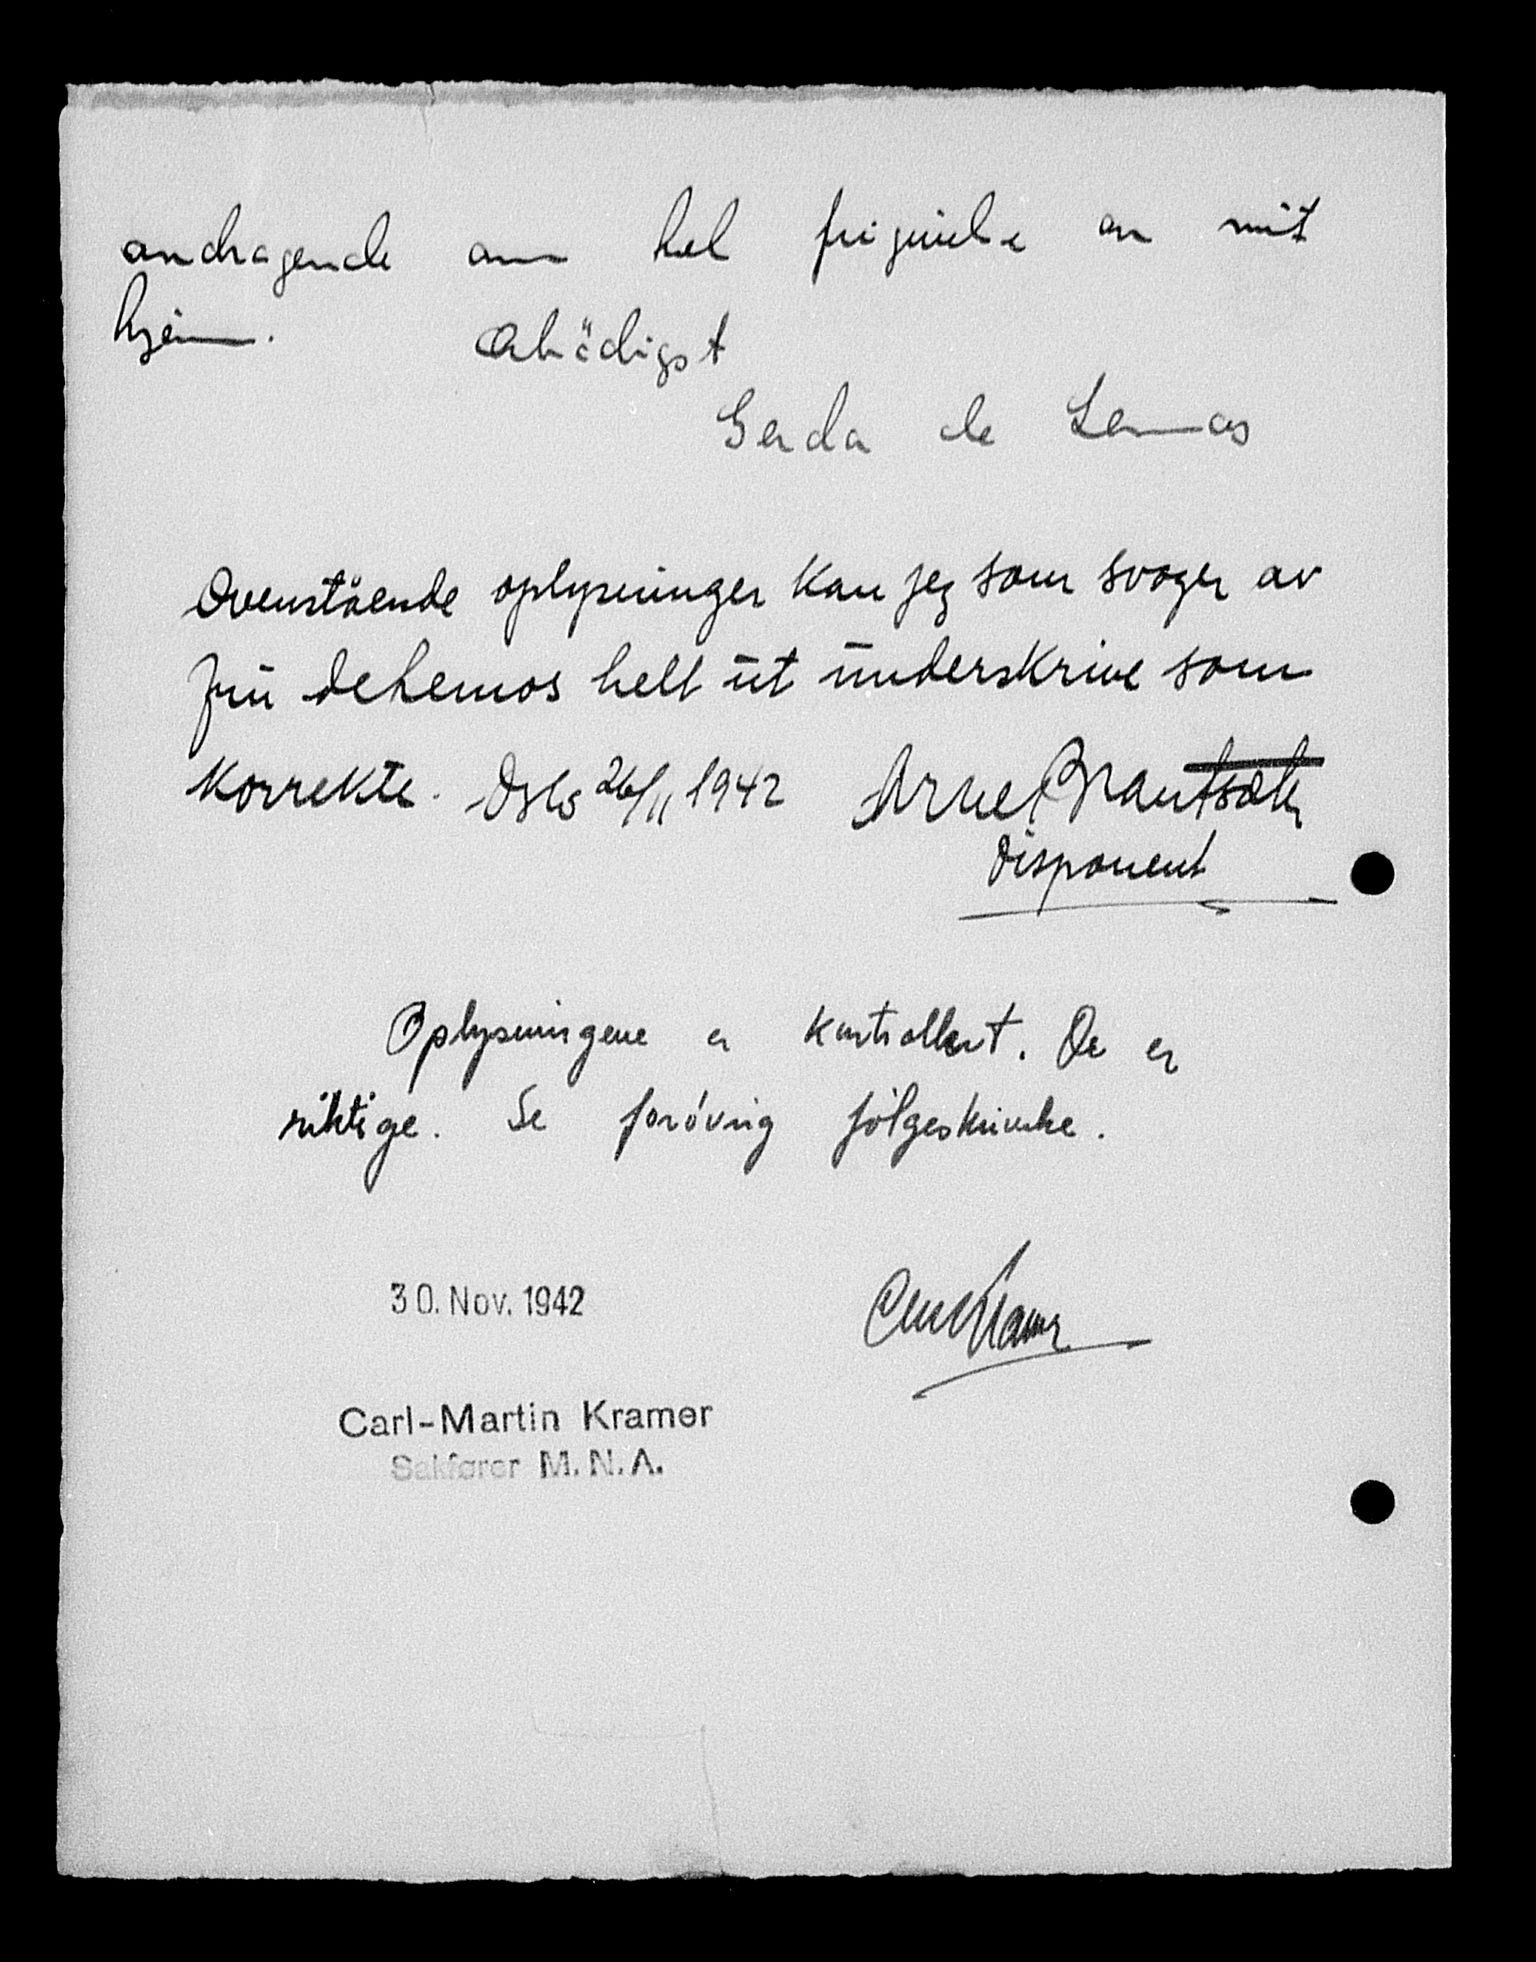 andragende om hel frigivelse av mit
hjem.
Ærbödigst
Gerda de Lemos
Ovenstående oplysninger kan jeg som svoger av
fru de Lemos helt ut underskrive som
korrekte. Oslo 26/11 1942 Arne
Disponent
Oplysningene er kontrollert. De er
riktige. Se forøvrig følgeskrivelse.
30. Nov. 1942
Carl-Martin Kramer
Sakfører M.N.A.